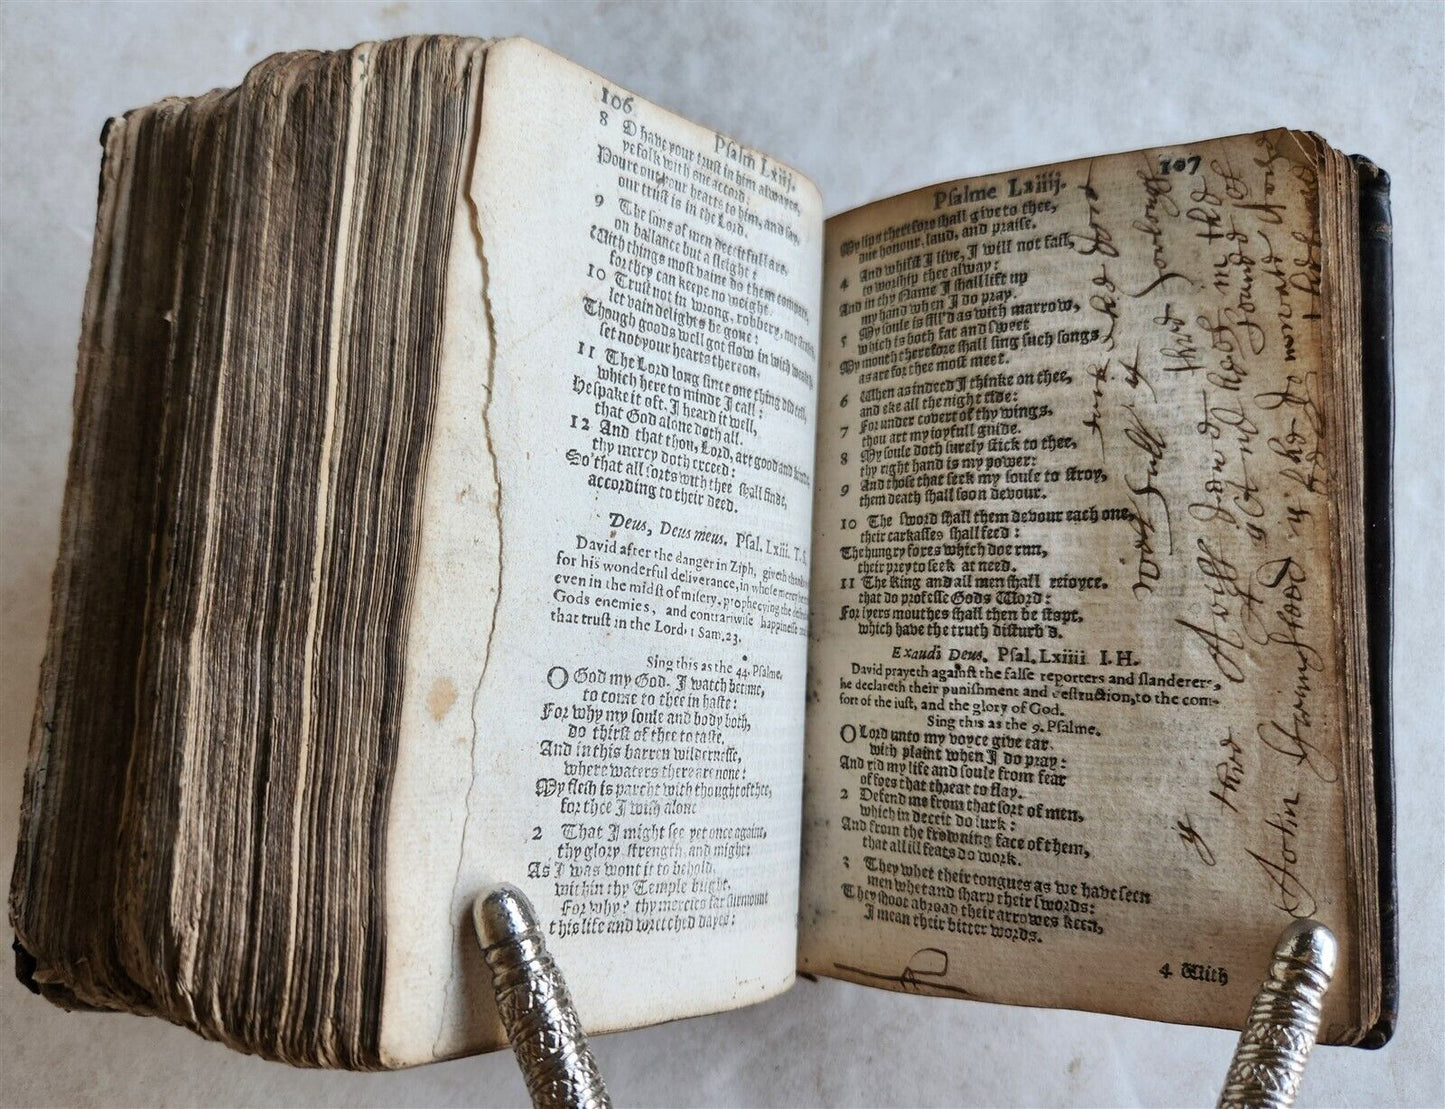 106
Psalm Lxiij.
8 O have your trust in him alwayes,
ye folk with one accord:
Poure out your hearts to him, and say,
our trust is in the Lord.
9 The sons of men deceitfull are,
on ballance but a sleight:
With things most vaine do them compare,
for they can keepe no weight.
10 Trust not in wrong, robbery, nor
let vain delights be gone:
Though goods well got flow in with wealth
set not your hearts thereon.
11 The Lord long since one thing did tell,
which here to minde I call:
He spake it oft, I heard it well,
that God alone doth all.
12 And that thou, Lord, art good and kinde
thy mercy doth exceed:
So that all sorts with thee shall finde,
according to their deed.
Deus, Deus meus. Psal. Lxiii. T. S.
David after the danger in Ziph, giveth thanks
for his wonderful deliverance, in whose mercy he
even in the midst of misery, prophecying the
Gods enemies, and contrariwise happinesse
that trust in the Lord, 1 Sam. 23.
Sing this as the 44. Psalme.
O God my God, I watch betime,
to come to thee in haste:
For why my soule and body both,
do thirst of thee to taste,
And in this barren wildernesse,
where waters there are none:
My flesh is parcht with thought of thee,
for thee I wish alone
2 That I might see yet once againe,
thy glory, strength, and might:
As I was wont it to behold,
within thy Temple bright,
For why? thy mercies far surmount
this life and wretched dayes:
107
Psalme Lxiiij.
My lips therefore shall give to thee,
due honour, laud, and praise.
4 And whilst I live, I will not fail,
to worship thee alway:
And in thy Name I shall lift up
my hand when I do pray.
5 My soule is fill'd as with marrow,
which is both fat and sweet
My mouth therefore shall sing such songs
as are for thee most meet.
6 When as indeed I thinke on thee,
and eke all the night tide:
7 For under covert of thy wings,
thou art my joyfull guide.
8 My soule doth surely stick to thee,
thy right hand is my power:
9 And those that seek my soule to stroy,
them death shall soon devour.
10 The sword shall them devour each one,
their carkasses shall feed:
The hungry foxes which doe run,
their prey to seek at need.
11 The King and all men shall rejoyce,
that do professe Gods Word:
For lyers mouthes shall then be stopt,
which have the truth disturb'd.
Exaudi Deus. Psal. Lxiiii I. H.
David prayeth against the false reporters and slanderers,
he declareth their punishment and destruction, to the com-
fort of the iust, and the glory of God.
Sing this as the 9. Psalme.
O Lord unto my voyce give ear,
with plaint when I do pray:
And rid my life and soule from fear
of foes that threat to slay.
2 Defend me from that sort of men,
which in deceit do lurk:
And from the frowning face of them,
that all ill feats do work.
3 They whet their tongues as we have seen
men whet and sharp their swords:
They shoot abroad their arrowes keen,
I mean their bitter words.
4 With
John